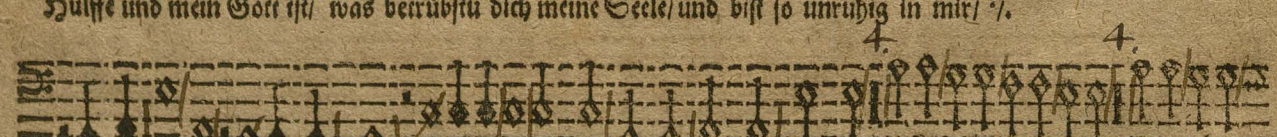 Hülffe und mein Gott ist/ was betrübstu dich meine Seele/ und bist so unruhig in mir/ ./.
4. 4.